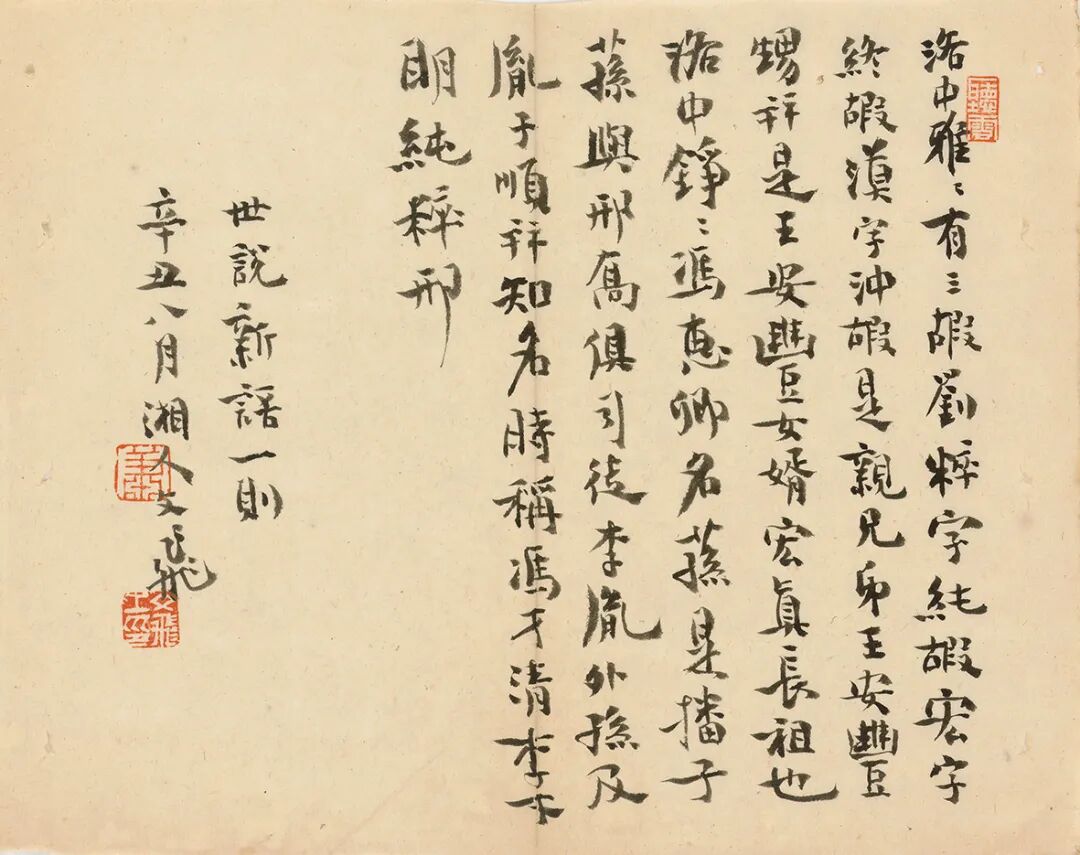 洛中雅〻有三嘏劉粹字純嘏宏字
終嘏漠字沖嘏是親兄弟王安豐
甥并是王安豐女婿宏眞長祖也
洛中錚〻馮惠卿名蓀是播子
蓀與邢喬俱司徒李胤外孫及
胤子順并知名時稱馮才清李才
明純粹邢
世說新語一則
辛丑八月湘人文飛